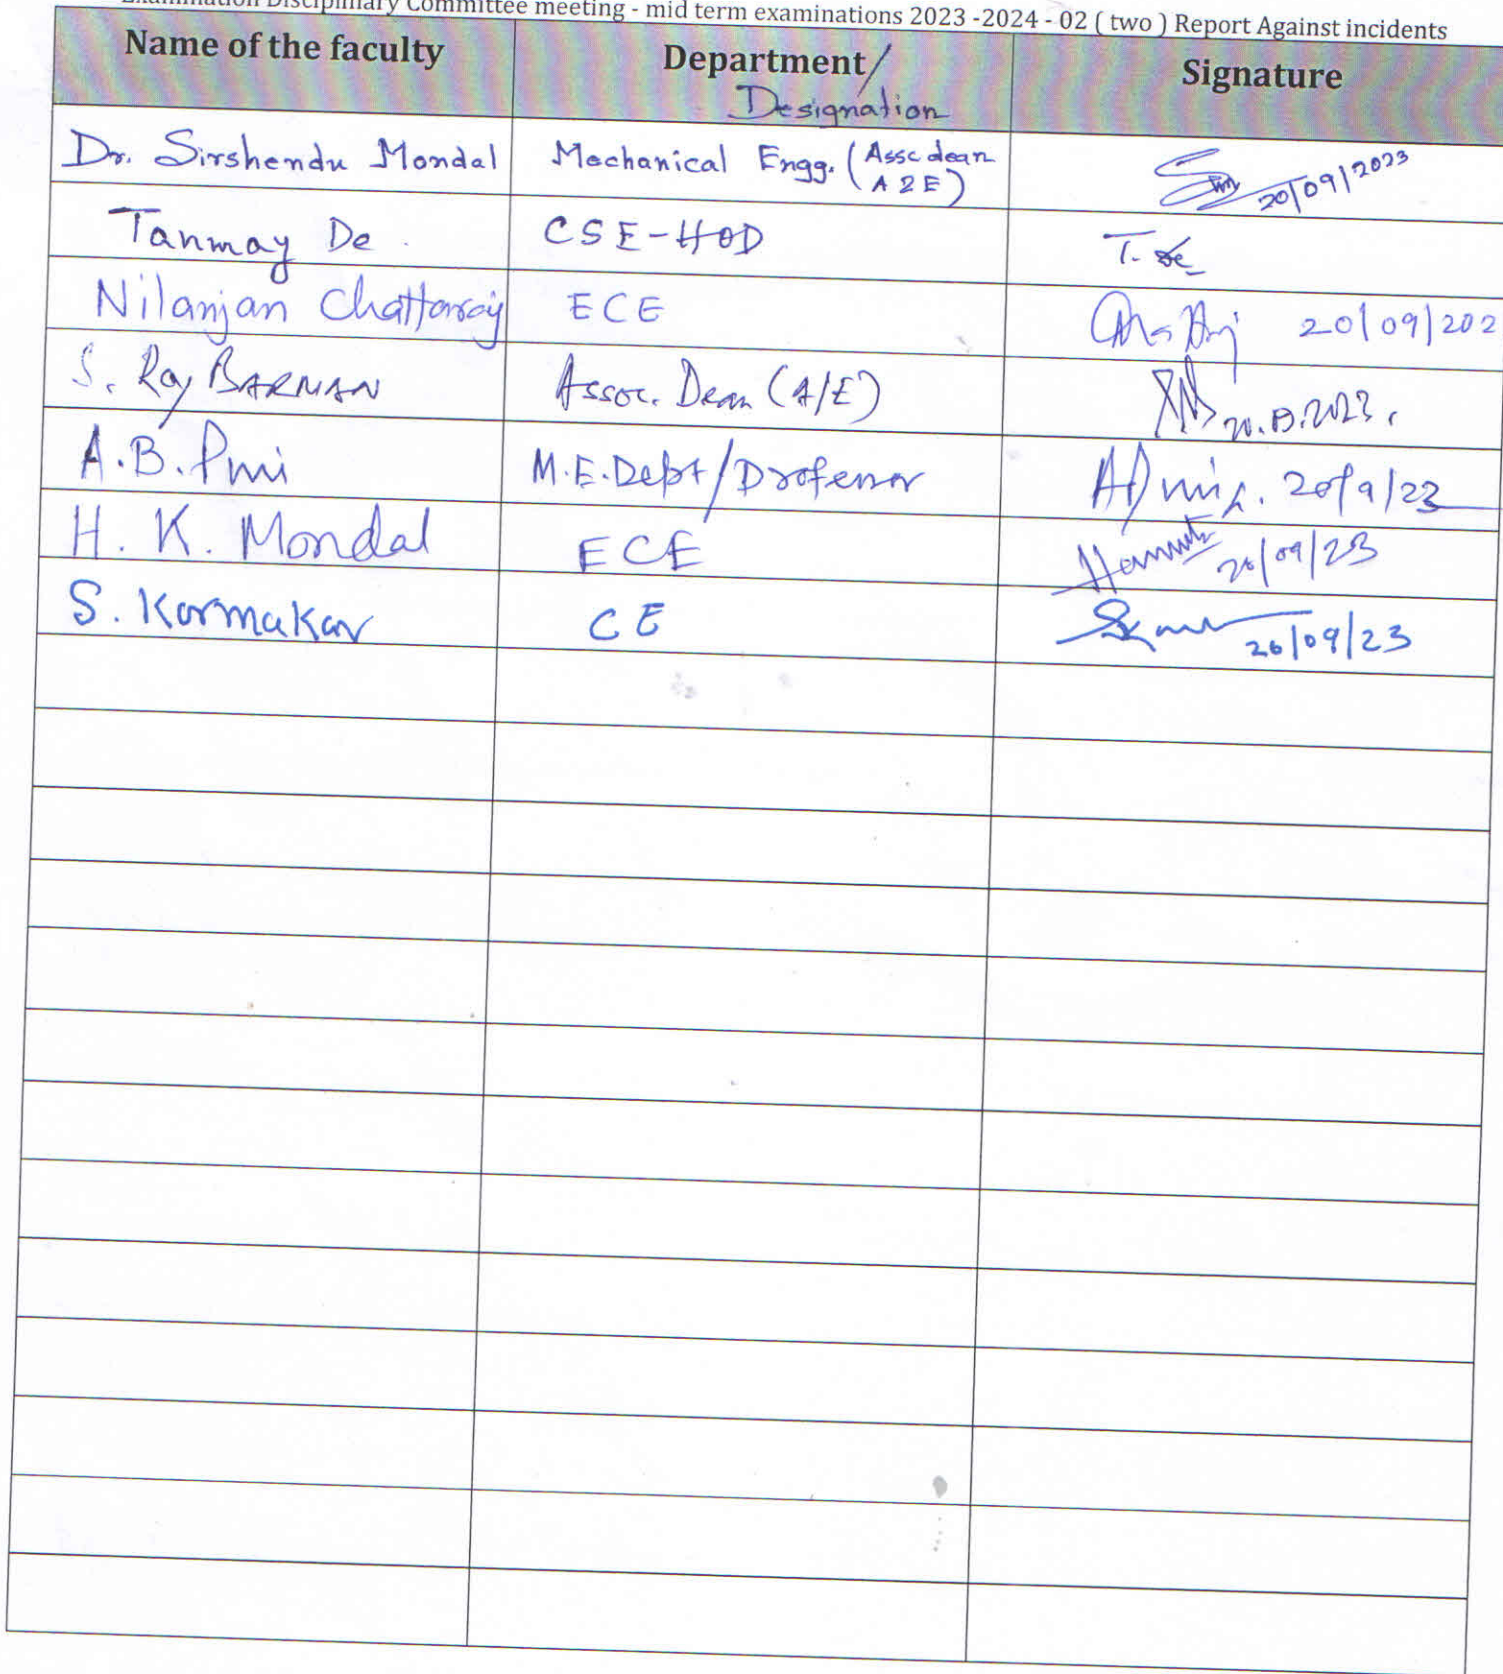 Examination Disciplinary Committee meeting - mid term examinations 2023 -2024 - 02 ( two ) Report Against incidents
Name of the faculty Department/ Signature
Designation
Dr. Sirshendu Mondal Mechanical Engg. (Assc dean 20/09/2023
A&E)
Tanmay De. CSE-HOD T. De
Nilanjan Chattaraj ECE 20/09/202
S. Roy BARMAN Assoc. Dean (A/E)
A.B. Puri M.E. Dept/Professor 20/9/23
H. K. Mondal ECE 20/09/23
S. Karmakar CE 20/09/23